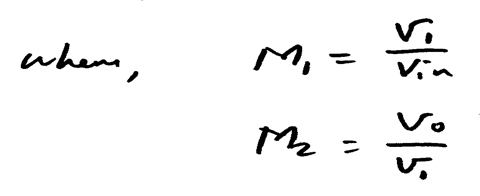 when, M₁ = V₁ / Vin
M₂ = Vo / V₁